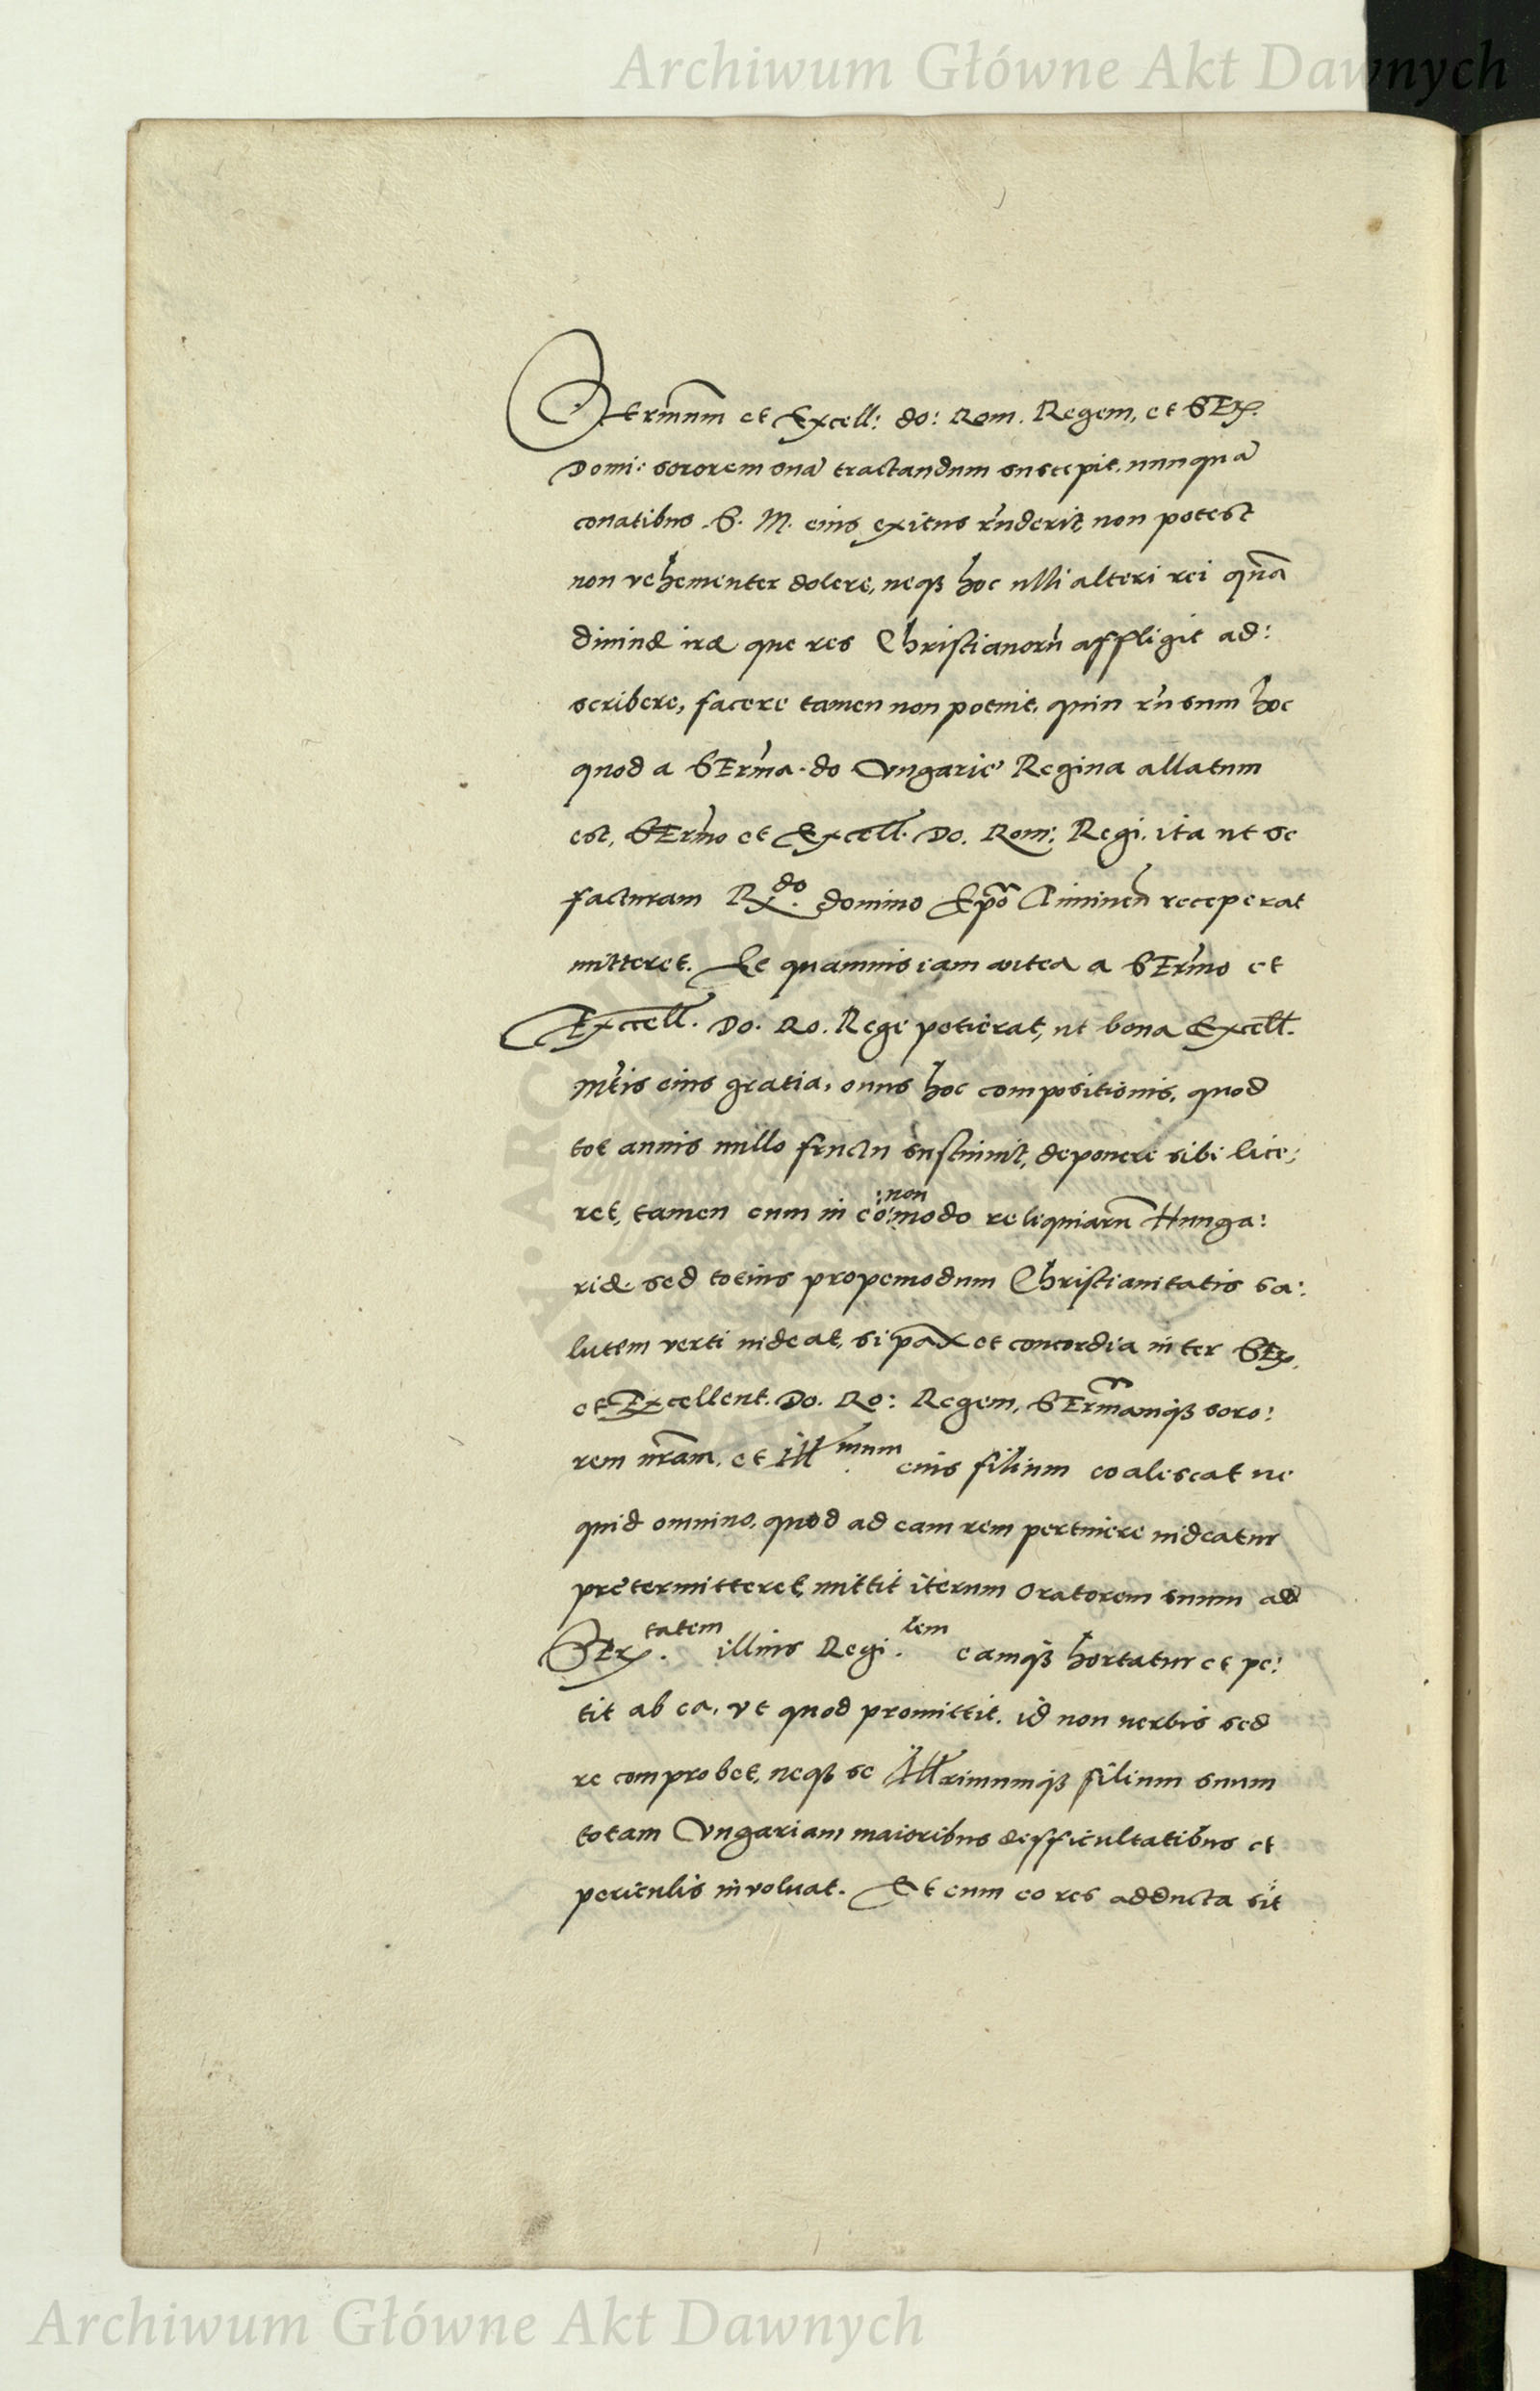 Archiwum Główne Akt Dawnych
Sermum et Excell: do: Rom. Regem, et SEr.
Domi: sororem suã tractandum suscepit, nunquã
conatibus S. M. eius exitus rñderit non potest
non vehementer dolere, neqꝫ hoc ulli alteri rei quã
diuinæ iræ que res Christianorũ affligit ad:
scribere, facere tamen non potuit, quin rũsum hoc
quod a SErma. do Vngarie Regina allatum
est, SErmo et Excell. Do. Rom: Regi. ita ut se
facturam Rdo. domino Epõ receperat
mitteret. Et quamuis iam antea a SErmo et
Excell. Do. Ro. Rege petierat, ut bona Excell.
Mtis eius gratia, onus hoc compositionis, quod
tot annis nullo fructu sustinuit, deponere sibi lice:
ret, tamen cum in cõmodo :non reliquiarũ Hunga:
riæ sed totius propemodum Christianitatis sa:
lutem verti uideat, si pax et concordia inter SEr.
et Excellent. Do. Ro: Regem, SErmamqꝫ soro:
rem nrãm, et Ill mum eius filium coalescat ne
quid omnino, quod ad eam rem pertinere uideatur
pretermitteret, mittit iterum Oratorem suum ad
SEr.tatem illius Regi.lem eamqꝫ hortatur et pe:
tit ab ea, vt quod promittit, id non uerbis sed
re comprobet, neqꝫ se Illrimumqꝫ filium suum
totam Vngariam maioribus difficultatibus et
periculis inuoluat. Et cum eo res adducta sit
Archiwum Główne Akt Dawnych